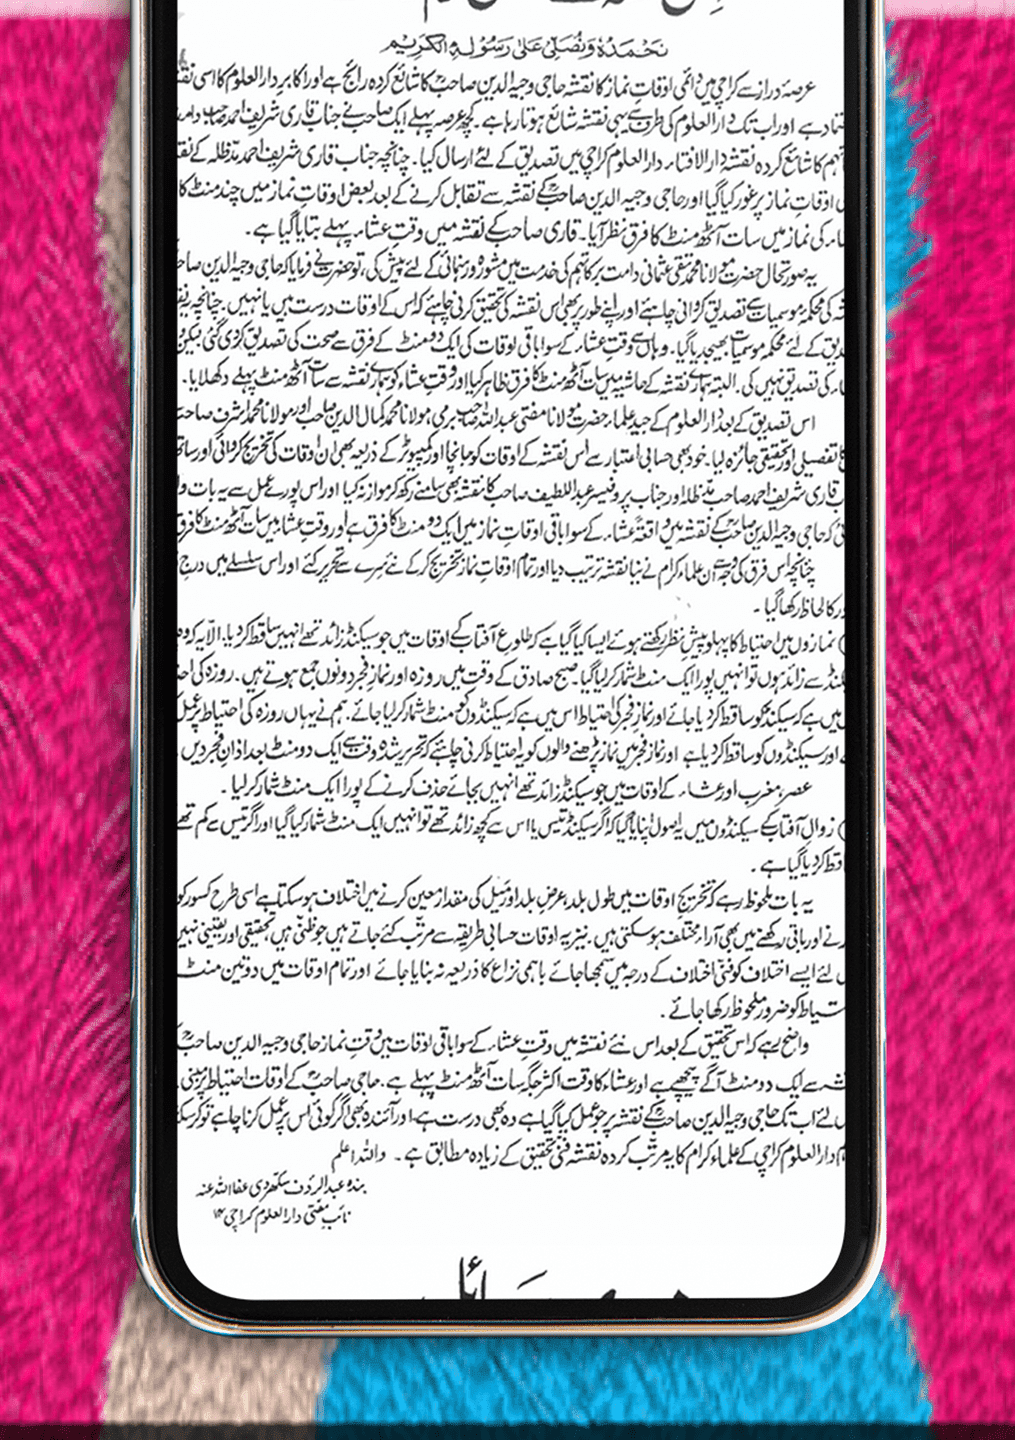 نَحْمَدُهٗ وَنُصَلِّیْ عَلٰی رَسُوْلِهِ الْکَرِیْم
عرصۂ دراز سے کراچی میں دائمی اوقاتِ نماز کا نقشہ حاجی وجیہ الدین صاحبؒ کا شائع کردہ رائج ہے اور اکابر دارالعلوم کا اسی
ہے اور اب تک دارالعلوم کی طرف سے یہی نقشہ شائع ہوتا رہا ہے۔ کچھ عرصہ پہلے ایک صاحب نے جناب قاری شریف احمد صاحب
کا شائع کردہ نقشہ دارالافتاء دارالعلوم کراچی میں تصدیق کے لئے ارسال کیا۔ چنانچہ جناب قاری شریف احمد مدظلہ کے
اوقاتِ نماز پر غور کیا گیا اور حاجی وجیہ الدین صاحبؒ کے نقشہ سے تقابل کرنے کے بعد بعض اوقاتِ نماز میں چند منٹ کا
کی نماز میں سات آٹھ منٹ کا فرق نظر آیا۔ قاری صاحب کے نقشہ میں وقتِ عشاء پہلے بتایا گیا ہے۔
یہ صورتحال حضرت مولانا محمد تقی عثمانی دامت برکاتہم کی خدمت میں مشورہ و رہنمائی کے لئے پیش کی، تو حضرت نے فرمایا کہ حاجی وجیہ الدین
کی محکمۂ موسمیات سے تصدیق کرانی چاہئے اور اپنے طور پر بھی اس نقشہ کی تحقیق کرنی چاہئے کہ اس کے اوقات درست ہیں یا نہیں۔ چنانچہ
کے لئے محکمہ موسمیات بھیجدیا گیا۔ وہاں سے وقتِ عشاء کے سوا باقی اوقات کی ایک دو منٹ کے فرق سے صحت کی تصدیق کر دی گئی لیکن
کی تصدیق نہیں کی۔ البتہ ہمارے نقشہ کے حاشیہ میں سات آٹھ منٹ کا فرق ظاہر کیا اور وقتِ عشاء کو ہمارے نقشہ سے سات آٹھ منٹ پہلے دکھلایا۔
اس تصدیق کے بعد دارالعلوم کے جید علماء حضرت مولانا مفتی عبداللہ صاحب برمی، مولانا محمد کمال الدین صاحب اور مولانا محمد اشرف صاحب
تفصیلی اور تحقیقی جائزہ لیا۔ خود بھی حسابی اعتبار سے اس نقشہ کے اوقات کو جانچا اور کمپیوٹر کے ذریعہ بھی ان اوقات کی تخریج کروائی اور
قاری شریف احمد صاحب مدظلہ اور جناب پروفیسر عبداللطیف صاحب کا نقشہ بھی سامنے رکھ کر موازنہ کیا اور اس پورے عمل سے یہ بات
کہ حاجی وجیہ الدین صاحبؒ کے نقشہ میں واقعۃً عشاء کے سوا باقی اوقاتِ نماز میں ایک دو منٹ کا فرق ہے اور وقتِ عشا میں سات آٹھ منٹ کا فرق
چنانچہ اس فرق کی وجہ سے ان علماء کرام نے نیا نقشہ ترتیب دیا اور تمام اوقاتِ نماز تخریج کر کے نئے سرے سے تحریر کئے اور اس سلسلے میں درج
کا لحاظ رکھا گیا۔
نمازوں میں احتیاط کا پہلو پیشِ نظر رکھتے ہوئے ایسا کیا گیا ہے کہ طلوعِ آفتاب کے اوقات میں جو سیکنڈ زائد تھے انہیں ساقط کر دیا۔ الّا یہ کہ وہ
سے زائد ہوں تو انہیں پورا ایک منٹ شمار کر لیا گیا۔ صبح صادق کے وقت میں روزہ اور نمازِ فجر دونوں جمع ہوتے ہیں۔ روزہ کی
میں ہے کہ سیکنڈ کو ساقط کر دیا جائے اور نمازِ فجر کی احتیاط اس میں ہے کہ سیکنڈوں کو منٹ شمار کر لیا جائے۔ ہم نے یہاں روزہ کی احتیاط پر عمل
اور سیکنڈوں کو ساقط کر دیا ہے اور نماز فجر میں نماز پڑھنے والوں کو یہ احتیاط کرنی چاہئے کہ تحریر شدہ وقت سے ایک دو منٹ بعد اذانِ فجر دیں۔
عصر، مغرب اور عشاء کے اوقات میں جو سیکنڈ زائد تھے انہیں بجائے حذف کرنے کے پورا ایک منٹ شمار کر لیا۔
زوالِ آفتاب کے سیکنڈوں میں یہ اصول بنایا گیا کہ اگر سیکنڈ تیس یا اس سے کچھ زائد تھے تو انہیں ایک منٹ شمار کیا گیا اور اگر تیس سے کم تھے
کر دیا گیا ہے۔
یہ بات ملحوظ رہے کہ تخریجِ اوقات میں طول بلد، عرض بلد اور میل کی مقدار معین کرنے میں اختلاف ہو سکتا ہے اسی طرح کسور کو
اور باقی رکھنے میں بھی آراء مختلف ہو سکتی ہیں۔ نیز یہ اوقات حسابی طریقہ سے مرتب کئے جاتے ہیں جو ظنّی ہیں تحقیقی اور یقینی نہیں
لئے ایسے اختلاف کو فنی اختلاف کے درجہ میں سمجھا جائے باہمی نزاع کا ذریعہ نہ بنایا جائے اور تمام اوقات میں دو تین منٹ
کو ضرور ملحوظ رکھا جائے۔
واضح رہے کہ اس تحقیق کے بعد اس نئے نقشہ میں وقتِ عشاء کے سوا باقی اوقات میں وقتِ نماز حاجی وجیہ الدین صاحبؒ
سے ایک دو منٹ آگے پیچھے ہے اور عشاء کا وقت اکثر جگہ سات آٹھ منٹ پہلے ہے۔ حاجی صاحبؒ کے اوقات احتیاط پر مبنی
لئے اب تک حاجی وجیہ الدین صاحبؒ کے نقشہ پر جو عمل کیا گیا ہے وہ بھی درست ہے، اور آئندہ بھی اگر کوئی اس پر عمل کرنا چاہے تو کر
دارالعلوم کراچی کے علماء کرام کا یہ مرتب کردہ نقشہ فنی تحقیق کے زیادہ مطابق ہے۔ واللہ اعلم
بندہ عبدالرؤف سکھروی عفا اللہ عنہ
نائب مفتی دارالعلوم کراچی ۱۴